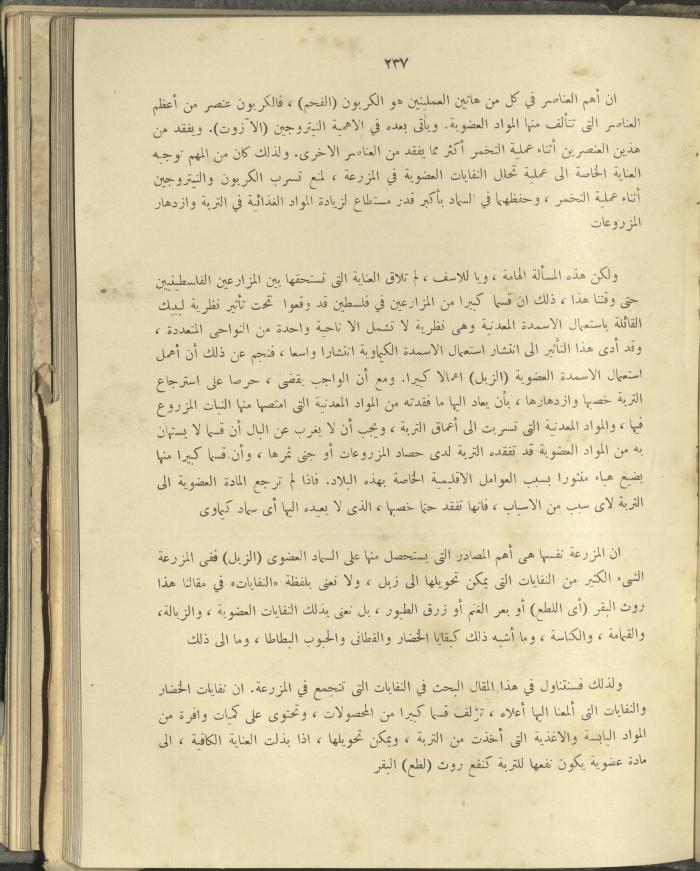 ٢٣٧
ان أهم العناصر في كل من هاتين العمليتين هو الكربون (الفحم) ، فالكربون عنصر من أعظم
العناصر التى تتألف منها المواد العضوية. ويأتى بعده في الاهمية النيتروجين (الآزوت). ويفقد من
هذين العنصرين أثناء عملية التخمر أكثر مما يفقد من العناصر الاخرى. ولذلك كان من المهم توجيه
العناية الخاصة الى عملية تحلل النفايات العضوية في المزرعة ، لمنع تسرب الكربون والنيتروجين
أثناء عملية التخمر ، وحفظهما في السماد بأكبر قدر مستطاع لزيادة المواد الغذائية في التربة وازدهار
المزروعات
ولكن هذه المسألة الهامة ، ويا للاسف ، لم تلاق العناية التى تستحقها بين المزارعين الفلسطينيين
حتى وقتنا هذا ، ذلك ان قسما كبيرا من المزارعين في فلسطين قد وقعوا تحت تأثير نظرية ليبيك
القائلة باستعمال الاسمدة المعدنية وهى نظرية لا تشمل الا ناحية واحدة من النواحى المتعددة ،
وقد أدى هذا التأثير الى انتشار استعمال الاسمدة الكيماوية انتشارا واسعا ، فنجم عن ذلك أن أهمل
استعمال الاسمدة العضوية (الزبل) اهمالا كبيرا. ومع أن الواجب يقضى ، حرصا على استرجاع
التربة خصبها وازدهارها ، بأن يعاد اليها ما فقدته من المواد المعدنية التى امتصها منها النبات المزروع
فيها ، والمواد المعدنية التى تسربت الى أعماق التربة ، ويجب أن لا يغرب عن البال أن قسما لا يستهان
به من المواد العضوية قد تفقده التربة لدى حصاد المزروعات أو جنى ثمرها ، وأن قسما كبيرا منها
يضيع هباء منثورا بسبب العوامل الاقليمية الخاصة بهذه البلاد. فاذا لم ترجع المادة العضوية الى
التربة لاى سبب من الاسباب ، فانها تفقد حتما خصبها ، الذى لا يعيده اليها أى سماد كيماوى
ان المزرعة نفسها هى أهم المصادر التى يستحصل منها على السماد العضوى (الزبل) ففى المزرعة
الشىء الكثير من النفايات التى يمكن تحويلها الى زبل ، ولا نعنى بلفظة «النفايات» في مقالنا هذا
روث البقر (أى اللطع) أو بعر الغنم أو زرق الطيور ، بل نعنى بذلك النفايات العضوية ، والزبالة،
والقمامة ، والكناسة ، وما أشبه ذلك كبقايا الخضار والقطانى والحبوب البطاطا ، وما الى ذلك
ولذلك فسنتناول في هذا المقال البحث في النفايات التى تتجمع في المزرعة. ان نفايات الخضار
والنفايات التى ألمعنا اليها أعلاه ، تؤلف قسما كبيرا من المحصولات ، وتحتوى على كميات وافرة من
المواد اليابسة والاغذية التى أخذت من التربة ، ويمكن تحويلها ، اذا بذلت العناية الكافية ، الى
مادة عضوية يكون نفعها للتربة كنفع روث (لطع) البقر